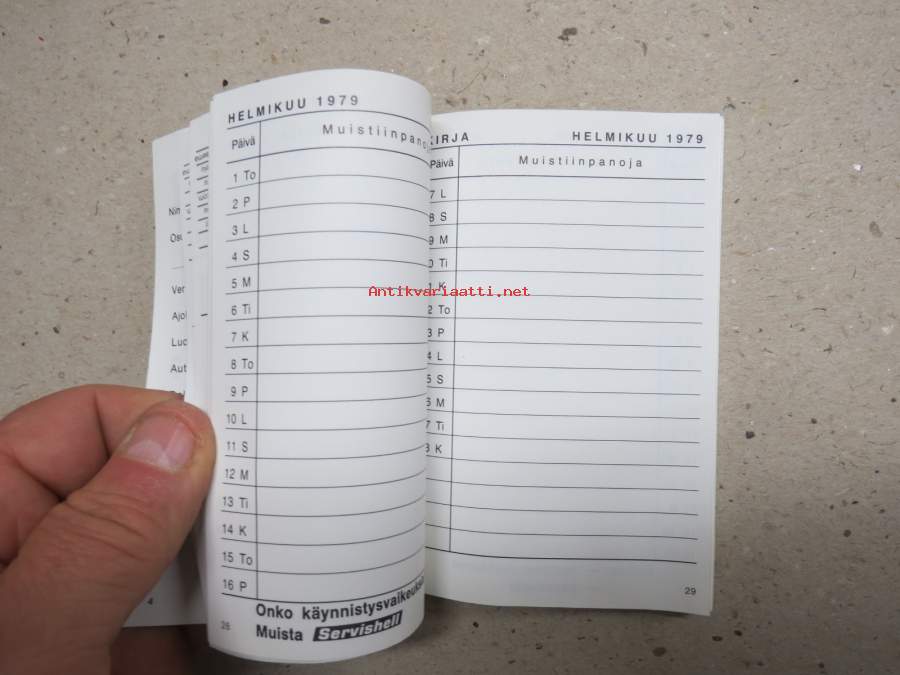 HELMIKUU 1979
Päivä Muistiinpano
1 To
2 P
3 L
4 S
5 M
6 Ti
7 K
8 To
9 P
10 L
11 S
12 M
13 Ti
14 K
15 To
16 P
Onko käynnistysvaikeuks
Muista Servishell
28
KIRJA HELMIKUU 1979
Päivä Muistiinpanoja
7 L
8 S
9 M
0 Ti
1 K
2 To
3 P
4 L
5 S
6 M
7 Ti
8 K
29
Antikvariaatti.net
Nim
Osu
Ver
Ajo
Luo
Aut
4